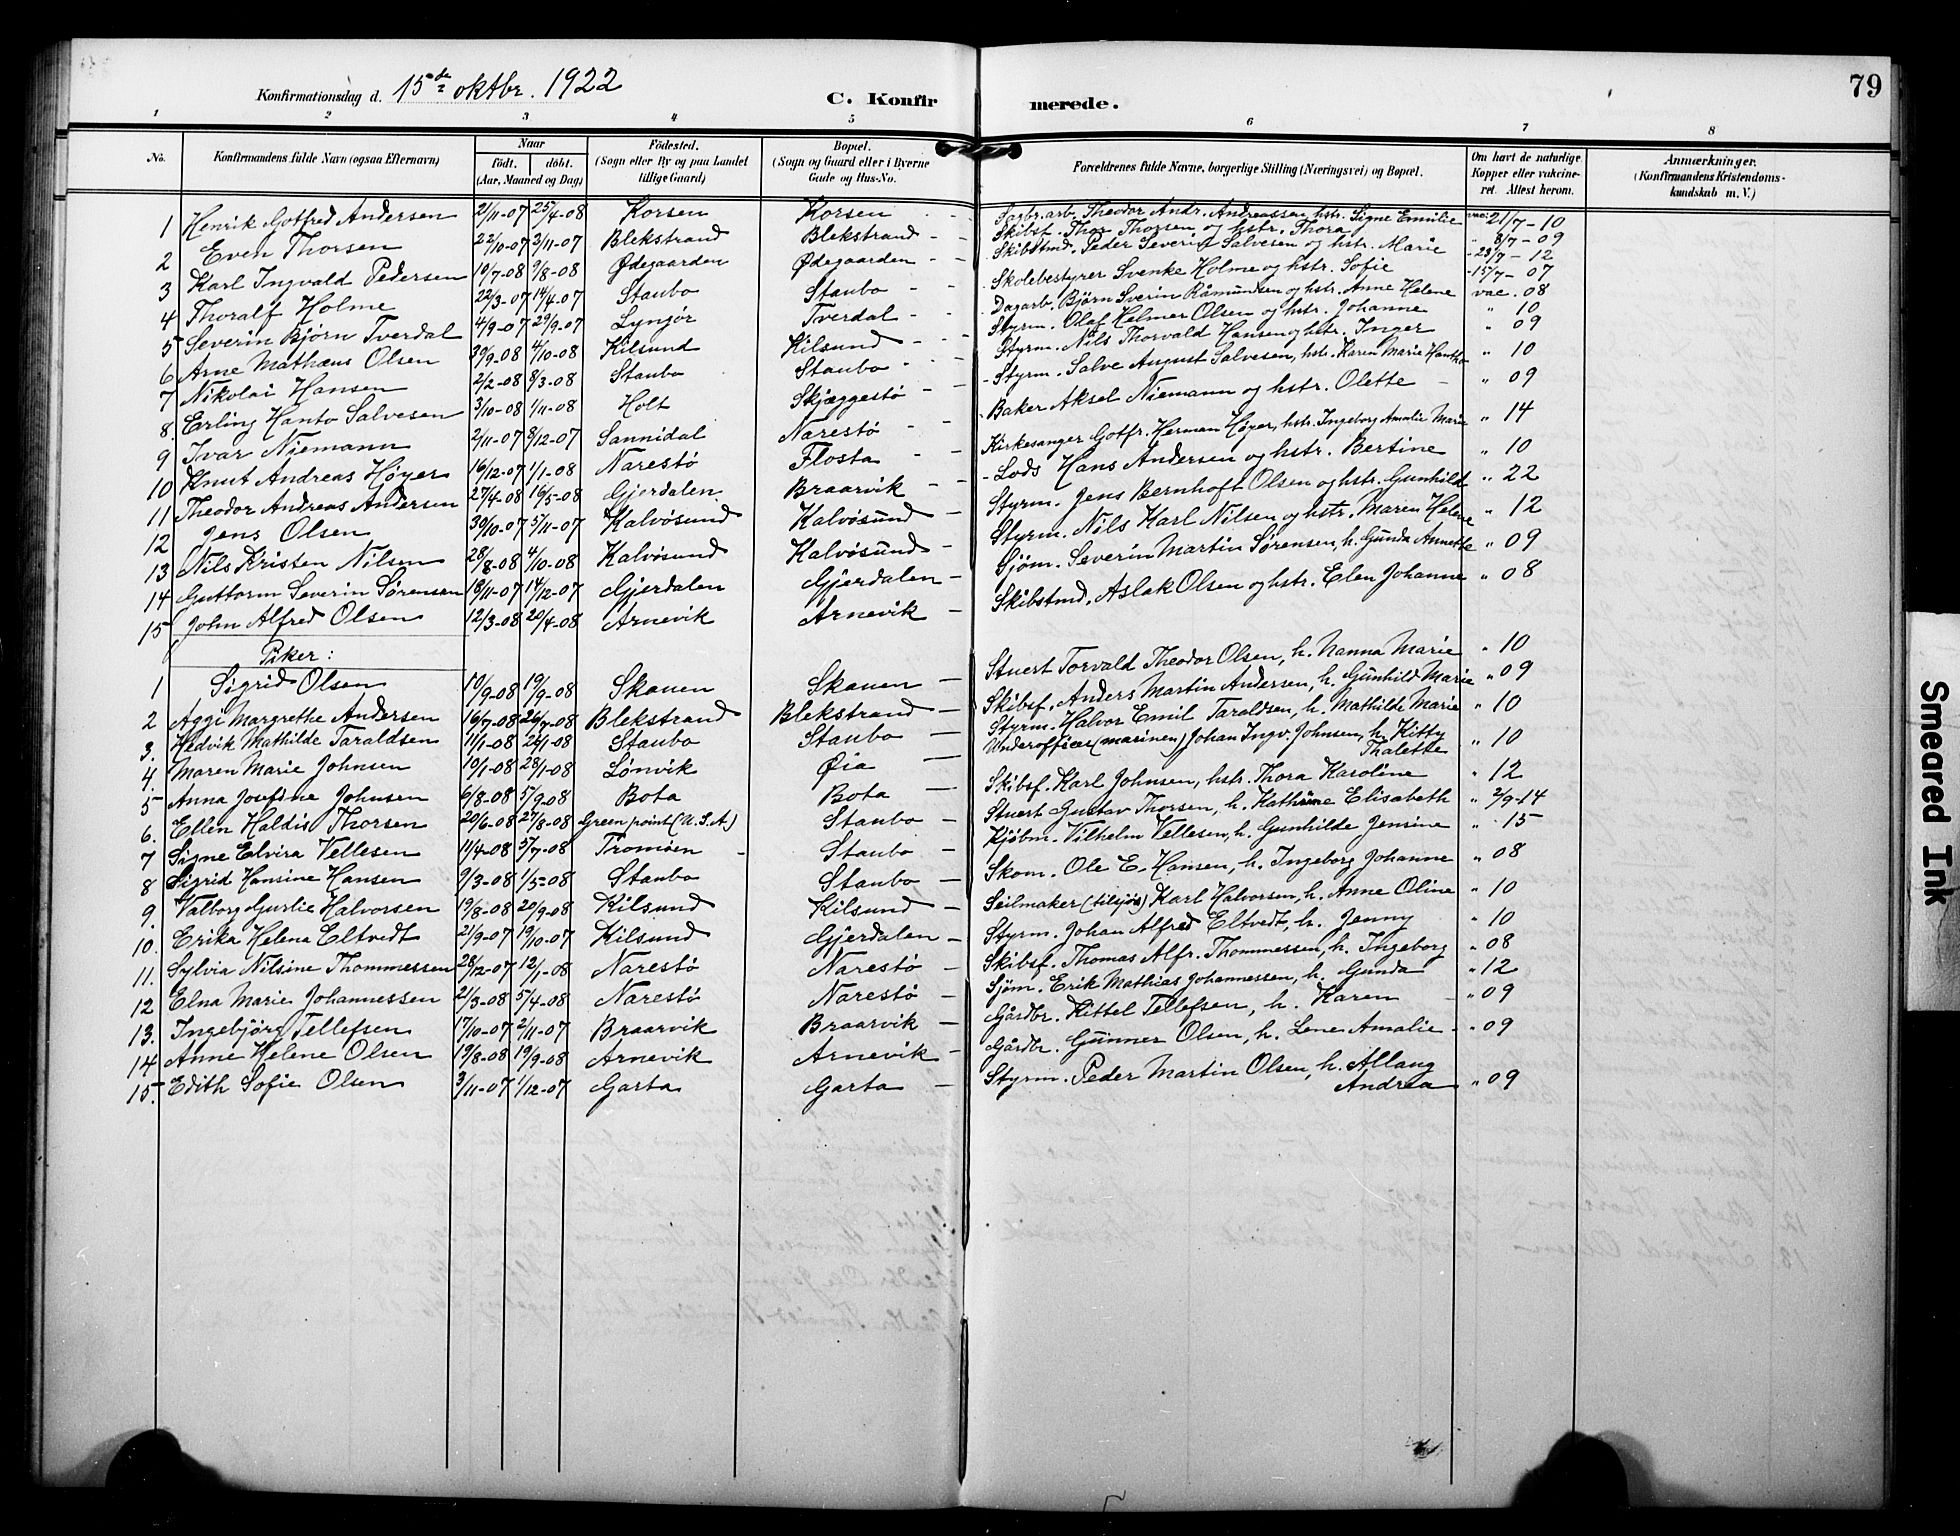 79
Konfirmationsdag d. 15de oktbr. 1922
C. Konfirmerede.
1 2 3 4 5 6 7 8
No. Konfirmandens fulde Navn (ogsaa Efternavn) Naar født, døbt. (Aar, Maaned og Dag) Fødested. (Sogn eller By og paa Landet tillige Gaard) Bopæl. (Sogn og Gaard eller i Byerne Gade og Hus-No. Forældrenes fulde Navne, borgerlige Stilling (Næringsvei) og Bopæl. Om havt de naturlige Kopper eller vakcineret. Attest herom. Anmærkninger. (Konfirmandens Kristendomskundskab m. V.)
1 Henrik Gotfred Andersen 2/11-07 25/4-08 Korsen Korsen Sagbr.arb. Theodor Andr. Andreassen hstr. Signe Emilie vac. 21/7-10
2 Even Thorsen 22/10-07 3/11-07 Blekstrand Blekstrand Skibst. Thor Thorsen og hstr. Thora " 8/7-09
3 Karl Ingvald Pedersen 10/7-08 9/8-08 Ødegaarden Ødegaarden Skibstmd. Peder Severin Salvesen og hstr. Marie 23/7-12
4 Thoralf Holme 22/3-07 14/4-07 Staubo Staubo Skolebestyrer Svenke Holme og hstr. Sofie 15/7-07
5 Severin Bjørn Tverdal 4/9-07 29/9-07 Lyngør Tverdal Dagarb. Bjørn Sverin Råmundsen og hstr. Anne Helene vac. 08
6 Arne Mathæus Olsen 30/9-08 4/10-08 Kilsund Kilsund Styrm. Olaf Helmer Olsen og hstr. Johanne " 10
7 Nikolai Hansen 2/2-08 8/3-08 Staubo Staubo Styrm. Nils Thorvald Hansen og hstr. Inger " 09
8. Erling Hanto Salvesen 3/10-08 1/11-08 Holt Skjæggestø Styrm. Salve August Salvesen, hstr. Karen Marie Hantho " 10
9 Ivar Niemann 2/11-07 8/12-07 Sannidal Narestø Baker Aksel Niemann og hstr. Olette " 09
10 Knut Andreas Høyer 16/12-07 1/1-08 Narestø Flosta Kirkesanger Gotfr. Herman Høyer, hstr. Ingeborg Amalie Marie " 14
11 Theodor Andreas Andersen 27/4-08 16/5-08 Gjerdalen Braarvik Lods Hans Andersen og hstr. Bertine " 10
12 Jens Olsen 30/10-07 5/11-07 Kalvøsund Kalvøsund Styrm. Jens Bernhoft Olsen og hstr. Gunhild " 22
13 Nils Kristen Nilsen 28/8-08 4/10-08 Kalvøsund Kalvøsund Styrm. Nils Karl Nilsen og hstr. Maren Helene " 12
14 Guttorm Severin Sørensen 18/11-07 14/12-07 Gjerdalen Gjerdalen Sjøm. Severin Martin Sørensen, h. Gunda Annette " 09
15 John Alfred Olsen 12/3-08 20/4-08 Arnevik Arnevik Skibstmd. Aslak Olsen og hstr. Elen Johanne " 08
Piker:
1 Sigrid Olsen 10/9-08 19/9-08 Skauen Skauen Stuert Torvald Theodor Olsen, h. Nanna Marie " 10
2 Aggi Margrethe Andersen 16/7-08 26/7-08 Blekstrand Blekstrand Skibsf. Anders Martin Andersen, h. Gunhild Marie " 09
3. Hedvik Mathilde Taraldsen 11/1-08 26/1-08 Staubo Staubo Styrm. Halvor Emil Taraldsen, h. Mathilde Marie " 10
4. Maren Marie Johnsen 10/1-08 28/1-08 Lønvik Øia Underofficer (marinen) Johan Ingv. Johnsen, h. Kitty Thalette " 10
5 Anna Josefine Johnsen 6/8-08 5/9-08 Bota Bota Skibsf. Karl Johnsen, hstr. Thora Karoline " 12
6. Ellen Haldis Thorsen 20/6-08 27/8-08 Green point (U.S.A) Staubo Stuert Gustav Thorsen, h. Kathrine Elisabeth " 2/9-14
7 Signe Elvira Vellesen 11/4-08 5/7-08 Tromøen Staubo Kjøbm. Vilhelm Vellesen, h. Gunhilde Jensine " 15
8 Sigrid Hansine Hansen 9/3-08 1/5-08 Staubo Staubo Skom. Ole E. Hansen, h. Ingeborg Johanne " 08
9. Valborg Gurlie Halvorsen 19/8-08 20/9-08 Kilsund Kilsund Seilmaker (tilsjøs) Karl Halvorsen, h. Anne Oline " 10
10. Erika Helena Eltvedt 21/9-07 19/10-07 Kilsund Gjerdalen Styrm. Johan Alfred Eltvedt, h. Jenny " 10
11. Sylvia Nilsine Thommessen 28/12-07 12/1-08 Narestø Narestø Skibsf. Thomas Alfr. Thommessen, h. Ingeborg " 08
12 Elna Marie Johannessen 21/3-08 5/4-08 Narestø Narestø Sjøm. Erik Mathias Johannessen, h. Gunda " 12
13. Ingebjørg Tellefsen 17/10-07 2/11-07 Braarvik Braarvik Gårdbr. Kittel Tellefsen, h. Karen " 09
14 Anne Helene Olsen 19/8-08 19/9-08 Arnevik Arnevik Gårdbr. Gunner Olsen, h. Lene Amalie " 09
15. Edith Sofie Olsen 3/11-07 1/12-07 Garta Garta Styrm. Peder Martin Olsen, h. Allang Andrea " 09
Smeared Ink